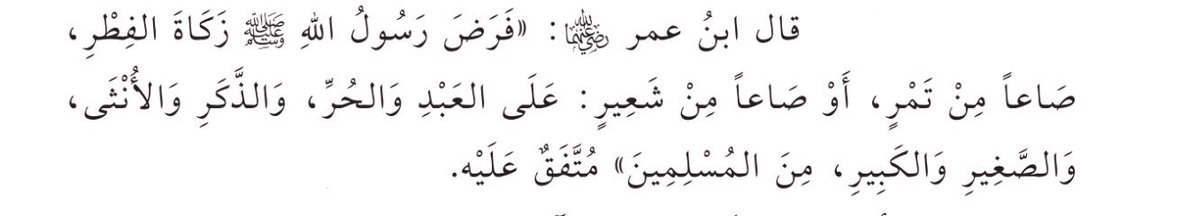 قال ابنُ عمر رضي الله عنهما: «فَرَضَ رَسُولُ اللهِ ﷺ زَكَاةَ الفِطْرِ،
صَاعاً مِنْ تَمْرٍ، أَوْ صَاعاً مِنْ شَعِيرٍ: عَلَى العَبْدِ وَالحُرِّ، وَالذَّكَرِ وَالأُنْثَى،
وَالصَّغِيرِ وَالكَبِيرِ، مِنَ المُسْلِمِينَ» مُتَّفَقٌ عَلَيْه.